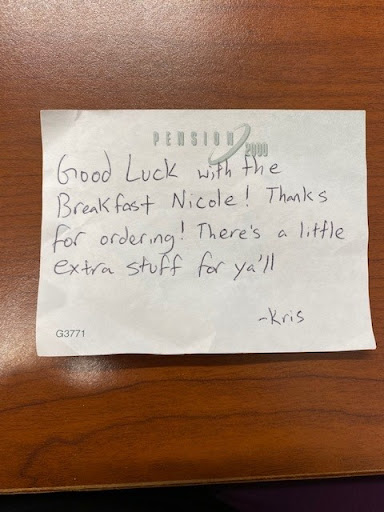 PENSION
2000
Good Luck with the
Breakfast Nicole! Thanks
for ordering! There's a little
extra stuff for ya'll
-Kris
G3771